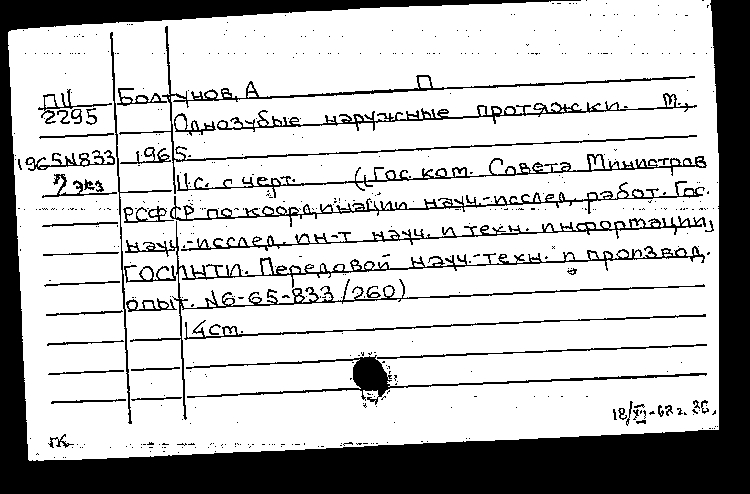 ПII Болтунов, А П
2295 Однозубые наружные протяжки. М.,
1965N833 1965.
2 экз 11с. с черт. (Гос. ком. Совета Министров
РСФСР по координации науч.-исслед. работ. Гос.
науч.-исслед. ин-т науч. и техн. информации,
ГОСИНТИ. Передовой науч.-техн. и производ.
опыт. N6-65-833/260)
14cm.
18/XI-68г.
ПК